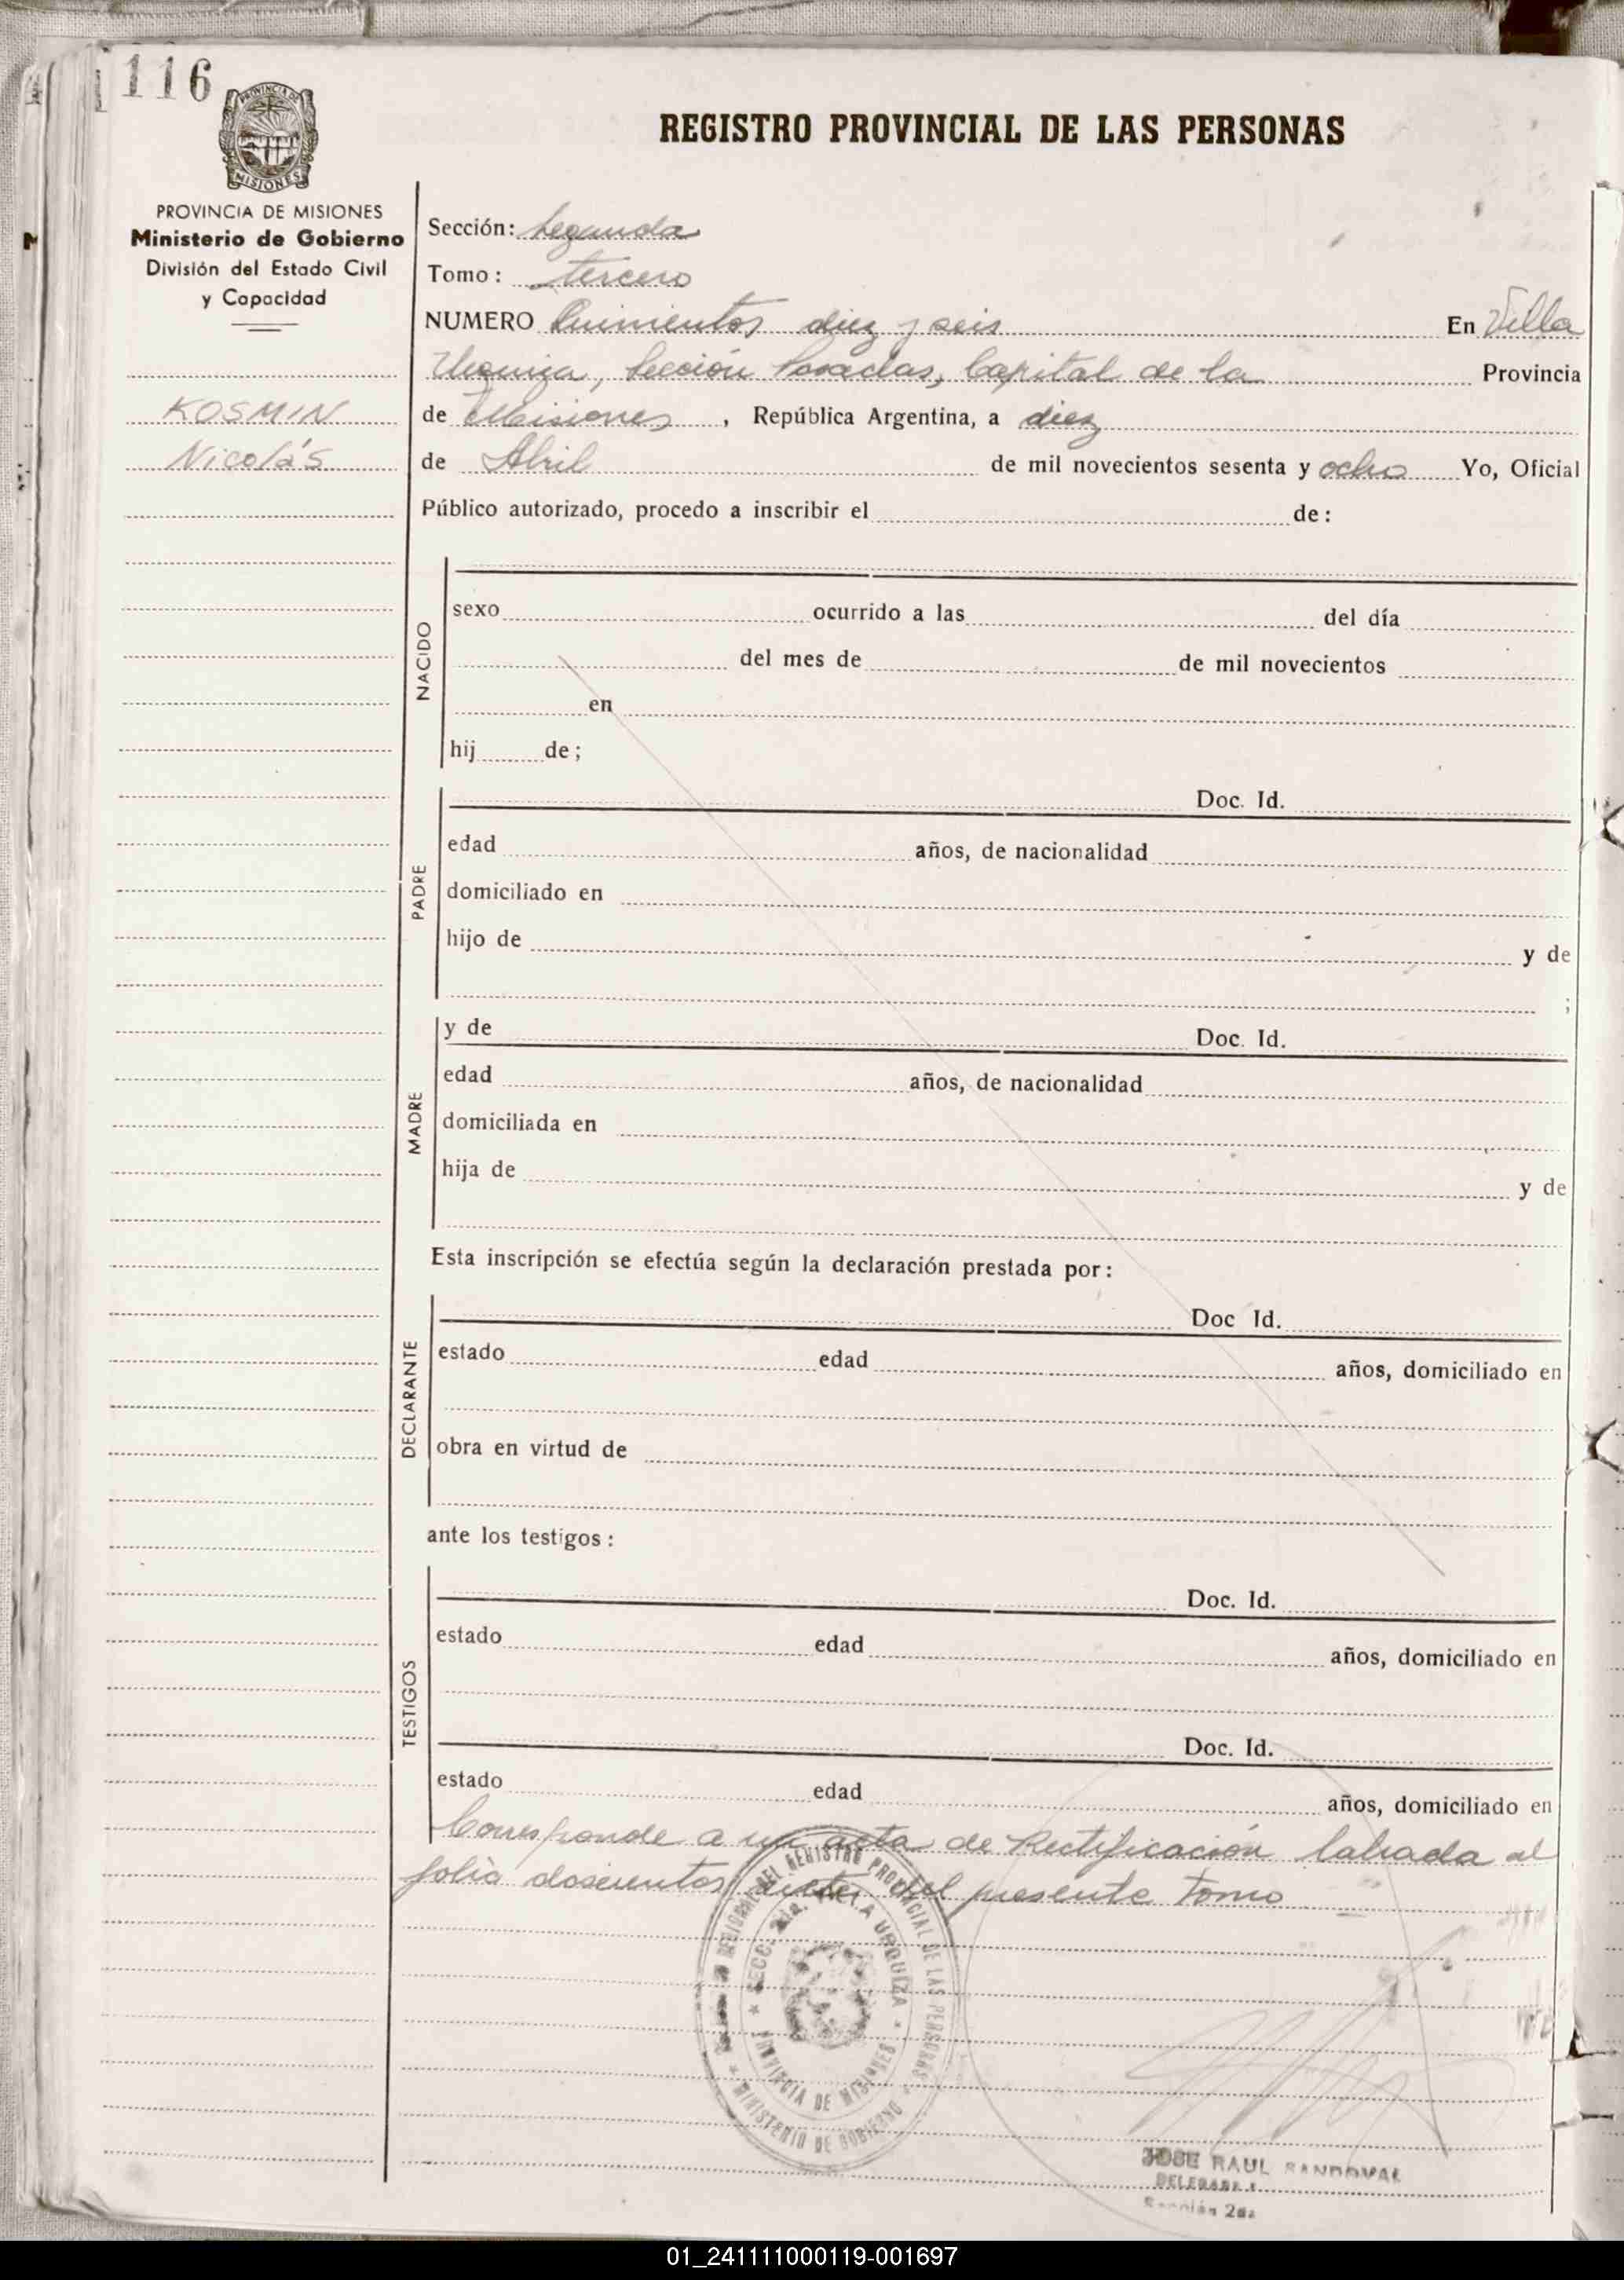 116
PROVINCIA DE MISIONES
REGISTRO PROVINCIAL DE LAS PERSONAS
PROVINCIA DE MISIONES
Ministerio de Gobierno
División del Estado Civil
y Capacidad
KOSMIN
Nicolás
Sección: Segunda
Tomo: tercero
NUMERO Quinientos diez y seis En Villa
Urquiza, Sección Posadas, Capital de la Provincia
de Misiones, República Argentina, a diez
de Abril de mil novecientos sesenta y ocho Yo, Oficial
Público autorizado, procedo a inscribir el de:
NACIDO
sexo ocurrido a las del día
del mes de de mil novecientos
en
hij de;
PADRE
Doc. Id.
edad años, de nacionalidad
domiciliado en
hijo de y de
;
MADRE
y de Doc. Id.
edad años, de nacionalidad
domiciliada en
hija de y de
Esta inscripción se efectúa según la declaración prestada por:
DECLARANTE
Doc Id.
estado edad años, domiciliado en
obra en virtud de
ante los testigos:
TESTIGOS
Doc. Id.
estado edad años, domiciliado en
Doc. Id.
estado edad años, domiciliado en
Corresponde a un acta de Rectificación labrada al
folio doscientos siete del presente Tomo
REGIONAL DEL REGISTRO PROVINCIAL DE LAS PERSONAS
SECC. 2da. VILLA URQUIZA
PROVINCIA DE MISIONES
MINISTERIO DE GOBIERNO
JOSE RAUL SANDOVAL
DELEGADO
Sección 2da
01_241111000119-001697